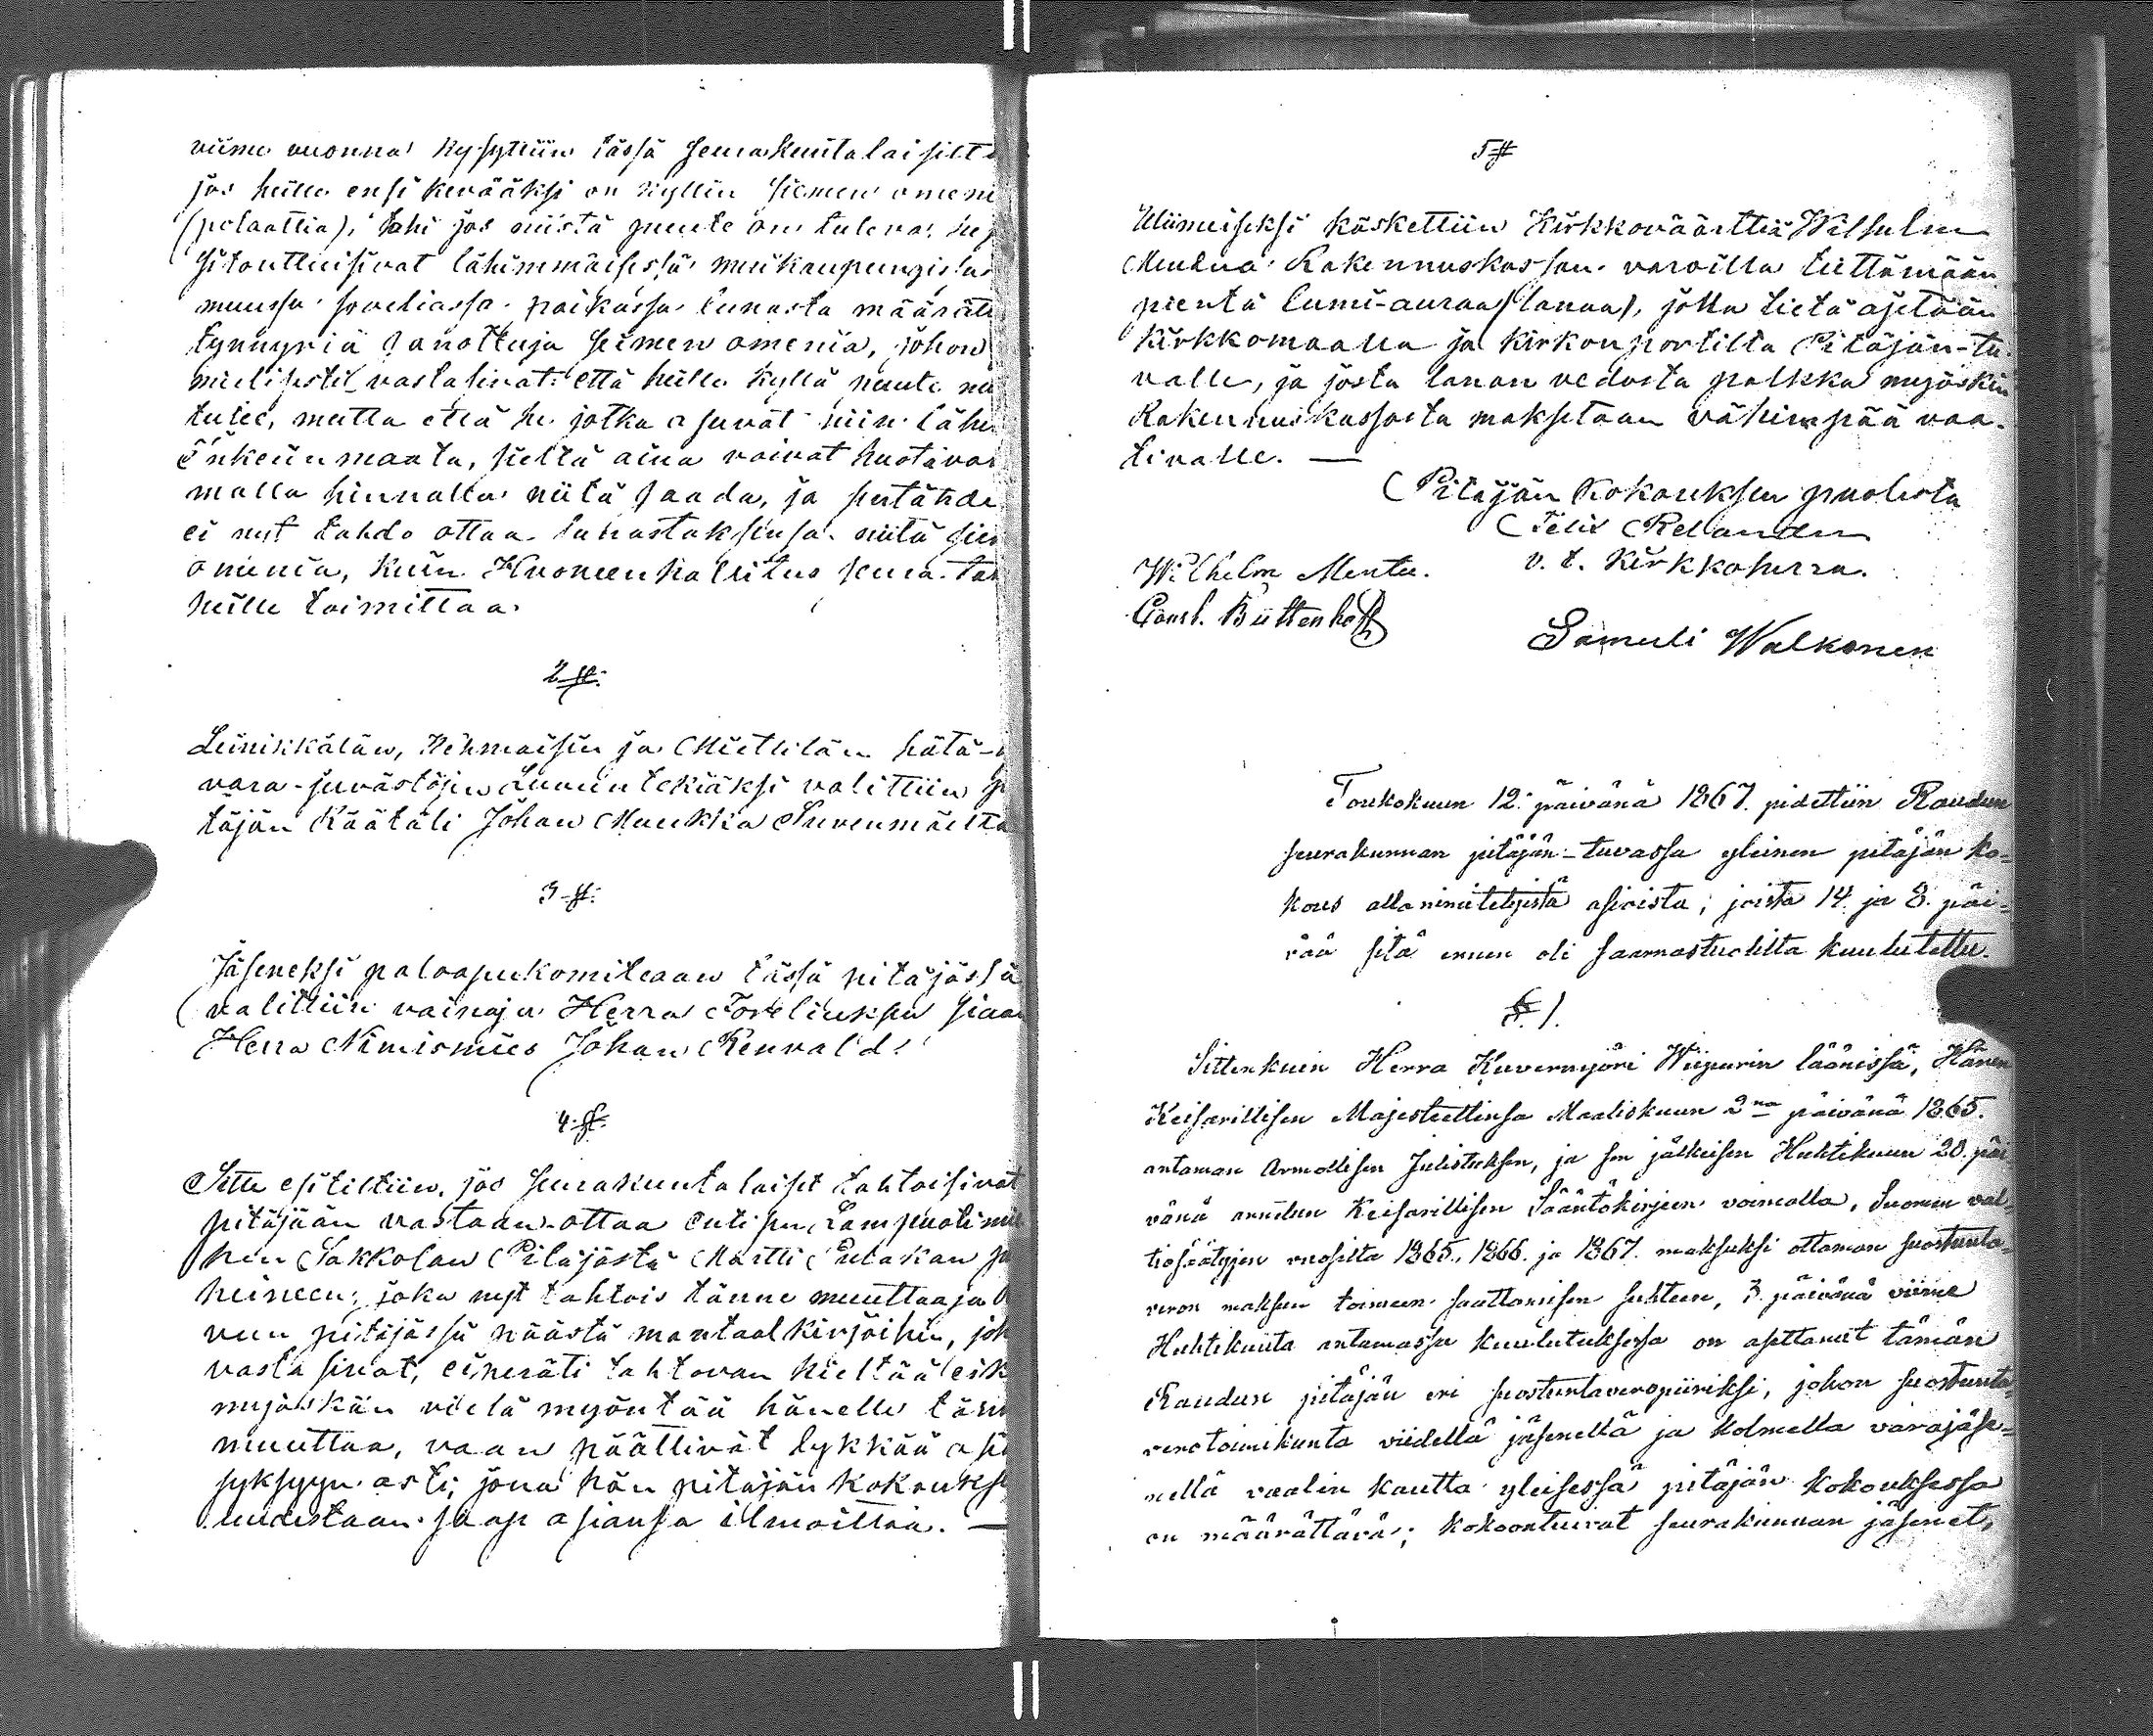 viime vuonna kysyttiin tässä seurakuntalaisilt
jos heille ensi kevääksi on kyllin siemen omeni
(potaattia), tahi jos niistä puute on tuleva, he
sitoutteisivat lähimmäisessä merikaupungissa
muussa soveliassa paikassa lunasta määrät
tynnyriä sanottuja siemen omenia, johon
mielisesti vastasivat: että heille kyllä puute
tulee, mutta että he jotka asuvat niin lähe
Inkerinmaata, sieltä aina voivat huotava
malla hinnalla niitä saada, ja sentähde
ei nyt tahdo ottaa lunastaksensa niitä sie
omenia, kuin Huoneenhallitus
heille toimittaa.
2 §.
Leinikkälän, Vehmaisin ja Miettilän hätä-
vara-juvästöjen Luuun tekiäksi valittiin pi
täjän Räätäli Johan Muukka Suvenmäeltä
3 §.
Jäseneksi paloapukomiteaan tässä pitäjässä
valittiin vainaja Herra Foreliuksen siaan
Herra Nimismies Johan Renvald.
4 §.
Sitte esiteltiin, jos seurakuntalaiset tahtoisivat
pitäjään vastaan-ottaa entisen Lampuoti
hen Sakkolan Pitäjästä Martti Putakan
heineen, joka nyt tahtois tänne muuttaa ja
vun pitäjässä päästä mantaalkirjoihin, joh
vastasivat, ei peräti tahtovan kieltää eik
myöskän vielä myöntää hänelle tänn
muuttaa, vaan päättivät lykkää asi
syksyyn asti; jona hän pitäjän kokoukse
uudestaan saap asiansa ilmoittaa. —
5 §
Viimeiseksi käskettiin Kirkkoväärttiä Wilhelm
Mentua Rakennuskassan varoilla teettämään
pientä lumi-auraa (lanaa), jolla tietä ajetaan
Kirkkomaalla ja Kirkon portilta Pitäjän-tu-
valle, ja josta lanan vedosta palkka myöskin
Rakennuskassasta maksetaan vähimpää vaa-
tivalle. —
Pitäjän Kokouksen puolesta
Felix Relander
v. t. Kirkkoherra.
Wilhelm Mentu.
Const. Büttenhoff
Samuli Walkonen
Toukokuun 12. päivänä 1867. pidettiin Raudun
seurakunnan pitäjän-tuvassa yleinen pitäjän ko-
kous alla nimitetyistä asioista; joista 14. ja 8. päi-
vää sitä ennen oli saarnastuolilta kuulutettu.
§. 1.
Sittenkuin Herra Kuvernyöri Wiipurin läänissä, Hänen
Keisarillisen Majesteettinsa Maaliskuun 2na päivänä 1865.
antaman Armollisen Julistuksen, ja sen jälkeisen Huhtikuun 20. päi
vänä annetun Keisarillisen Sääntökirjeen voimalla, Suomen val-
tiosäätyjen vuosilta 1865., 1866. ja 1867. maksuksi ottaman suostunta-
veron maksun toimeen saattamisen suhteen, 3. päivänä viime
Huhtikuuta antamassa kuulutuksessa on asettanut tämän
Raudun pitäjän eri suostuntaveropiiriksi, johon suostunta-
verotoimikunta viidellä jäsenellä ja kolmella varajäse-
nellä vaalin kautta yleisessä pitäjän kokouksessa
on määrättävä; kokoontuivat seurakunnan jäsenet,